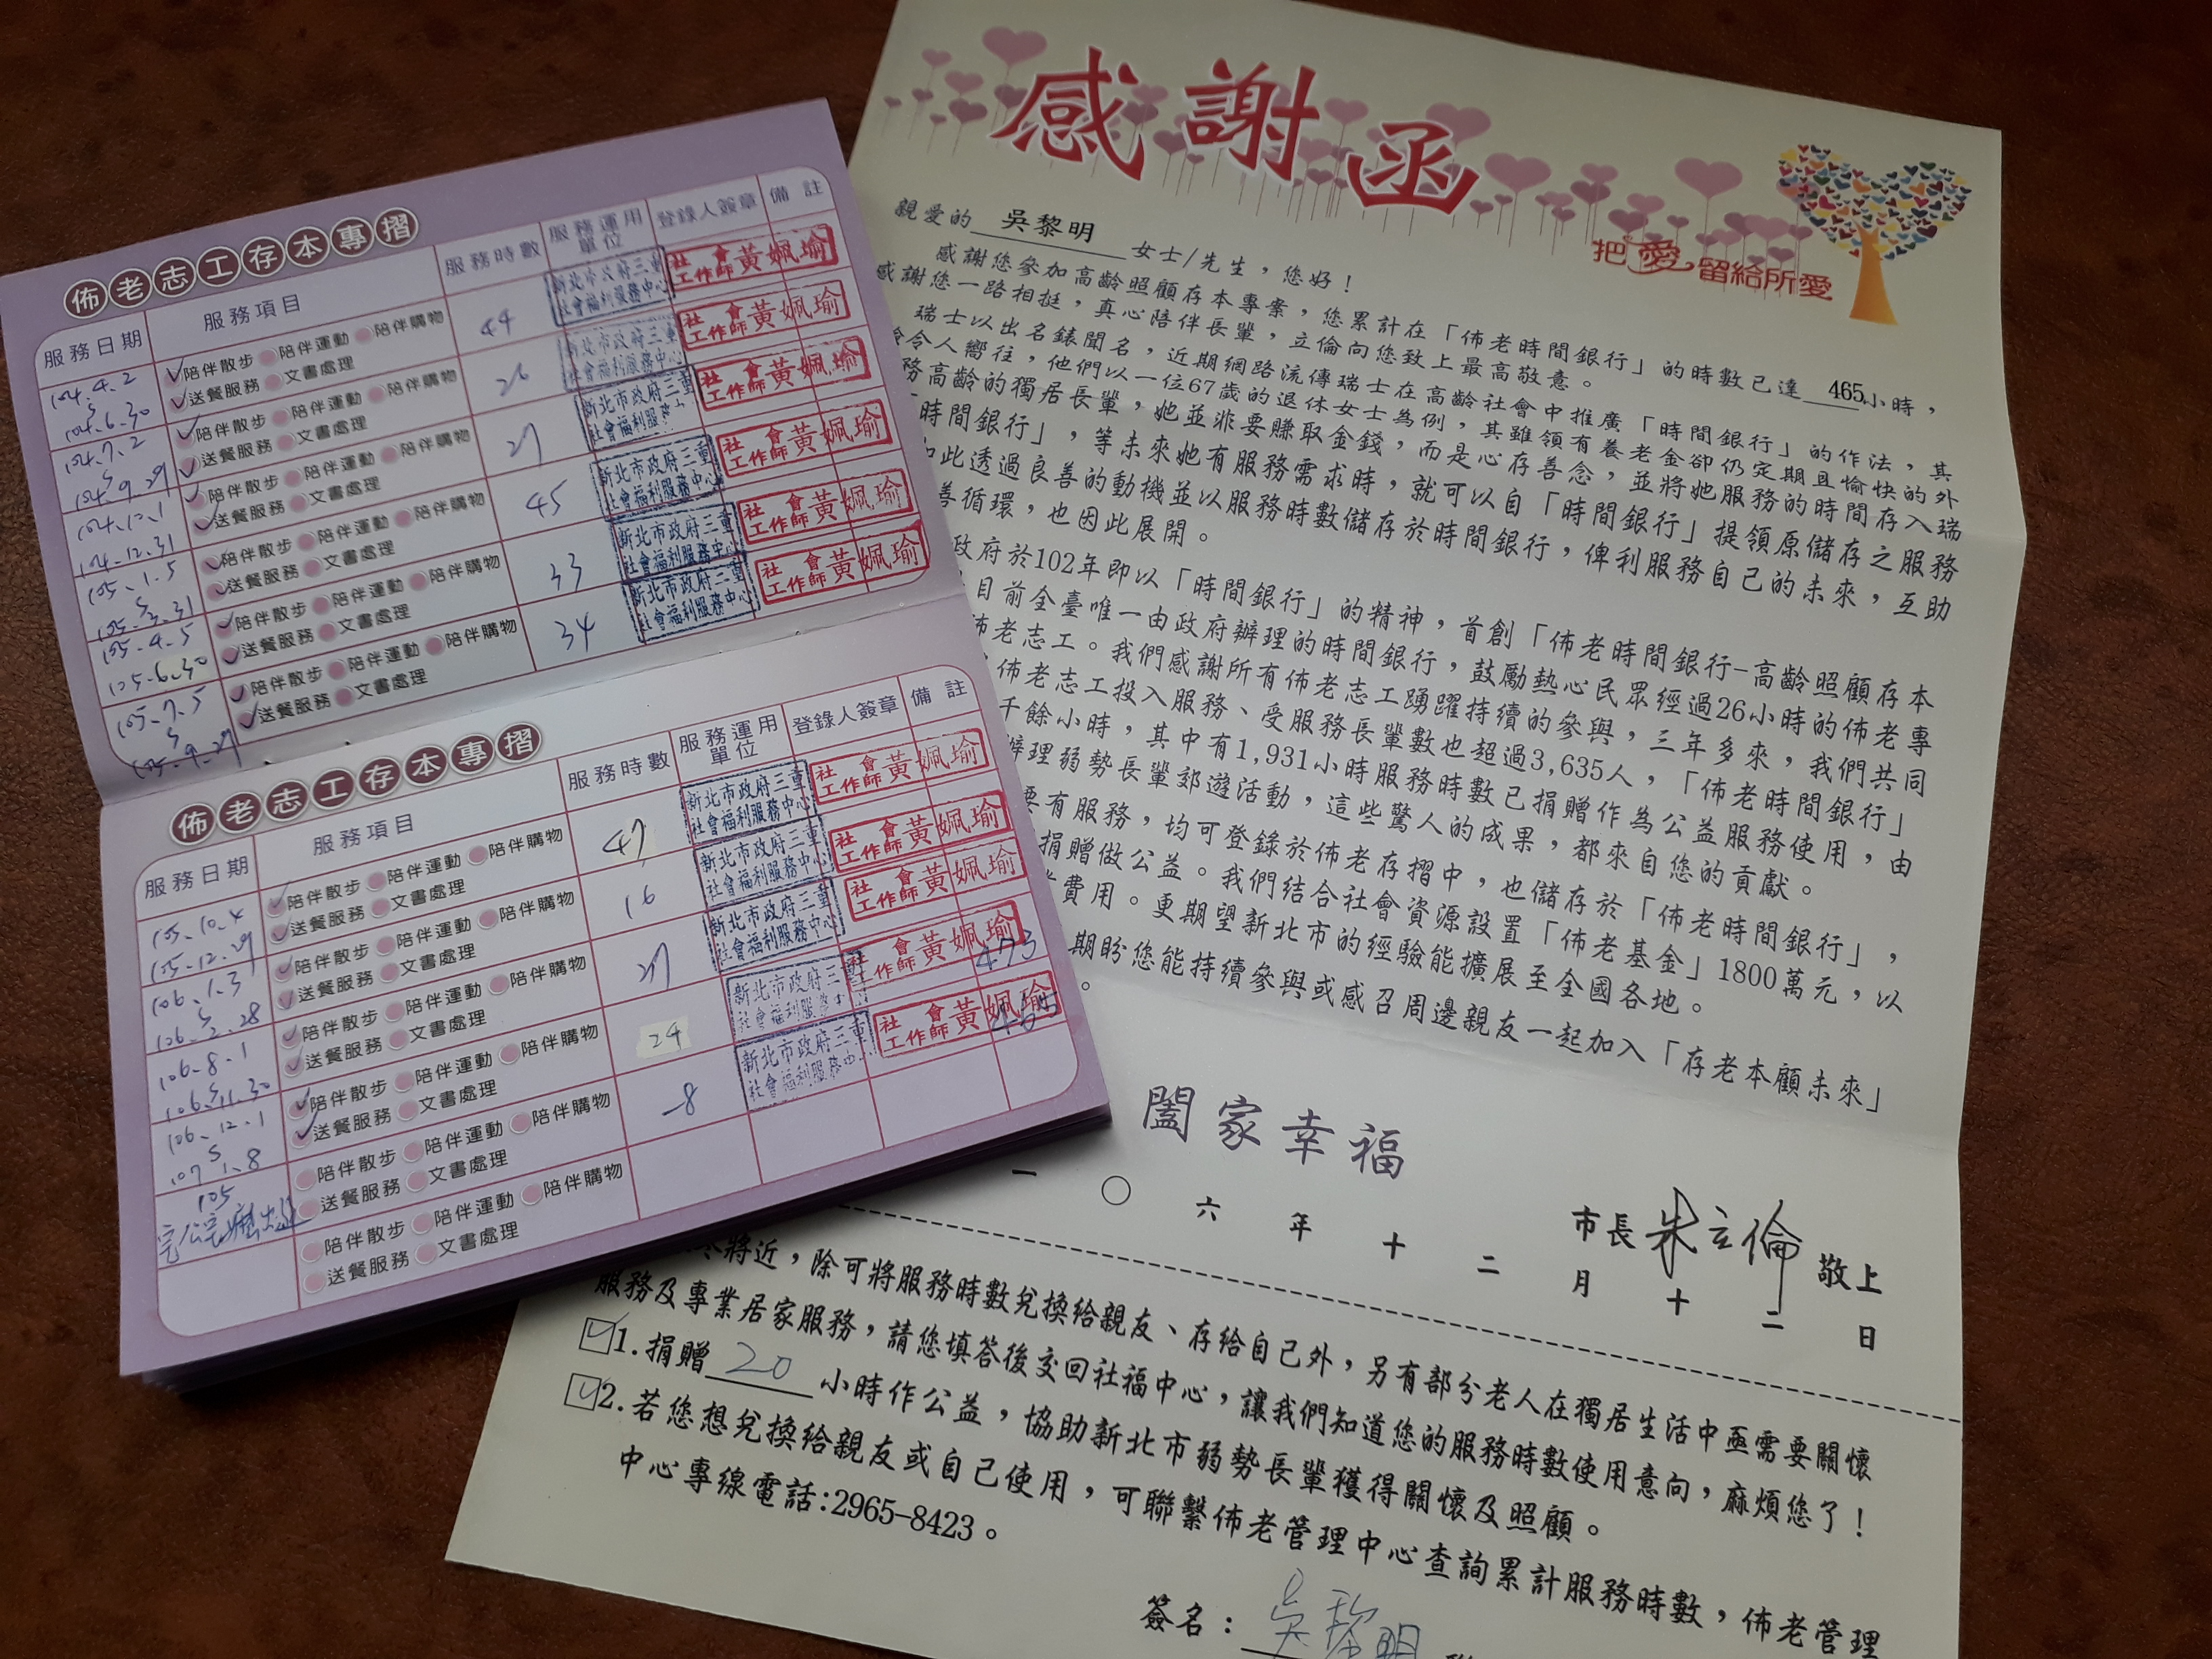 佈老志工存本專摺
服務日期 服務項目 服務時數 服務運用單位 登錄人簽章 備註
104.4.2
104.6.30
陪伴散步 陪伴運動 陪伴購物
送餐服務 文書處理
44
新北市政府三重
社會福利服務中心
社會工作師 黃姵瑜
104.7.2
104.9.29
陪伴散步 陪伴運動 陪伴購物
送餐服務 文書處理
26
新北市政府三重
社會福利服務中心
社會工作師 黃姵瑜
104.10.1
104.12.31
陪伴散步 陪伴運動 陪伴購物
送餐服務 文書處理
27
新北市政府三重
社會福利服務中心
社會工作師 黃姵瑜
105.1.5
105.3.31
陪伴散步 陪伴運動 陪伴購物
送餐服務 文書處理
45
新北市政府三重
社會福利服務中心
社會工作師 黃姵瑜
105.4.5
105.6.30
陪伴散步 陪伴運動 陪伴購物
送餐服務 文書處理
33
新北市政府三重
社會福利服務中心
社會工作師 黃姵瑜
105.7.5
105.9.29
陪伴散步 陪伴運動 陪伴購物
送餐服務 文書處理
34
新北市政府三重
社會福利服務中心
社會工作師 黃姵瑜
佈老志工存本專摺
服務日期 服務項目 服務時數 服務運用單位 登錄人簽章 備註
105.10.4
105.12.29
陪伴散步 陪伴運動 陪伴購物
送餐服務 文書處理
47
新北市政府三重
社會福利服務中心
社會工作師 黃姵瑜
106.1.3
106.2.28
陪伴散步 陪伴運動 陪伴購物
送餐服務 文書處理
16
新北市政府三重
社會福利服務中心
社會工作師 黃姵瑜
106.8.1
106.11.30
陪伴散步 陪伴運動 陪伴購物
送餐服務 文書處理
新北市政府三重
社會福利服務中心
社會工作師 黃姵瑜
106.12.1
107.1.8
陪伴散步 陪伴運動 陪伴購物
送餐服務 文書處理
24
新北市政府三重
社會福利服務中心
社會工作師 黃姵瑜
473
105
陪伴散步 陪伴運動 陪伴購物
送餐服務 文書處理
-8
新北市政府三重
社會福利服務中心
社會工作師 黃姵瑜
465
陪伴散步 陪伴運動 陪伴購物
送餐服務 文書處理
感謝函
把愛留給所愛
親愛的 吳黎明 女士/先生,您好!
感謝您參加高齡照顧存本專案,您累計在「佈老時間銀行」的時數已達 465小時,
感謝您一路相挺,真心陪伴長輩,立倫向您致上最高敬意。
瑞士以出名錶聞名,近期網路流傳瑞士在高齡社會中推廣「時間銀行」的作法,其
令人嚮往,他們以一位67歲的退休女士為例,其雖領有養老金卻仍定期且愉快的外
務高齡的獨居長輩,她並非要賺取金錢,而是心存善念,並將她服務的時間存入瑞
「時間銀行」,等未來她有服務需求時,就可以自「時間銀行」提領原儲存之服務
如此透過良善的動機並以服務時數儲存於時間銀行,俾利服務自己的未來,互助
善循環,也因此展開。
政府於102年即以「時間銀行」的精神,首創「佈老時間銀行-高齡照顧存本
目前全臺唯一由政府辦理的時間銀行,鼓勵熱心民眾經過26小時的佈老專
佈老志工。我們感謝所有佈老志工踴躍持續的參與,三年多來,我們共同
佈老志工投入服務、受服務長輩數也超過3,635人,「佈老時間銀行」
千餘小時,其中有1,931小時服務時數已捐贈作為公益服務使用,由
辦理弱勢長輩郊遊活動,這些驚人的成果,都來自您的貢獻。
要有服務,均可登錄於佈老存摺中,也儲存於「佈老時間銀行」,
捐贈做公益。我們結合社會資源設置「佈老基金」1800萬元,以
費用。更期望新北市的經驗能擴展至全國各地。
期盼您能持續參與或感召周邊親友一起加入「存老本顧未來」
。
闔家幸福
市長朱立倫 敬上
一〇六年十二月十二日
冬將近,除可將服務時數兌換給親友、存給自己外,另有部分老人在獨居生活中亟需要關懷
服務及專業居家服務,請您填答後交回社福中心,讓我們知道您的服務時數使用意向,麻煩您了!
1.捐贈 20 小時作公益,協助新北市弱勢長輩獲得關懷及照顧。
2.若您想兌換給親友或自己使用,可聯繫佈老管理中心查詢累計服務時數,佈老管理
中心專線電話:2965-8423。
簽名: 吳黎明